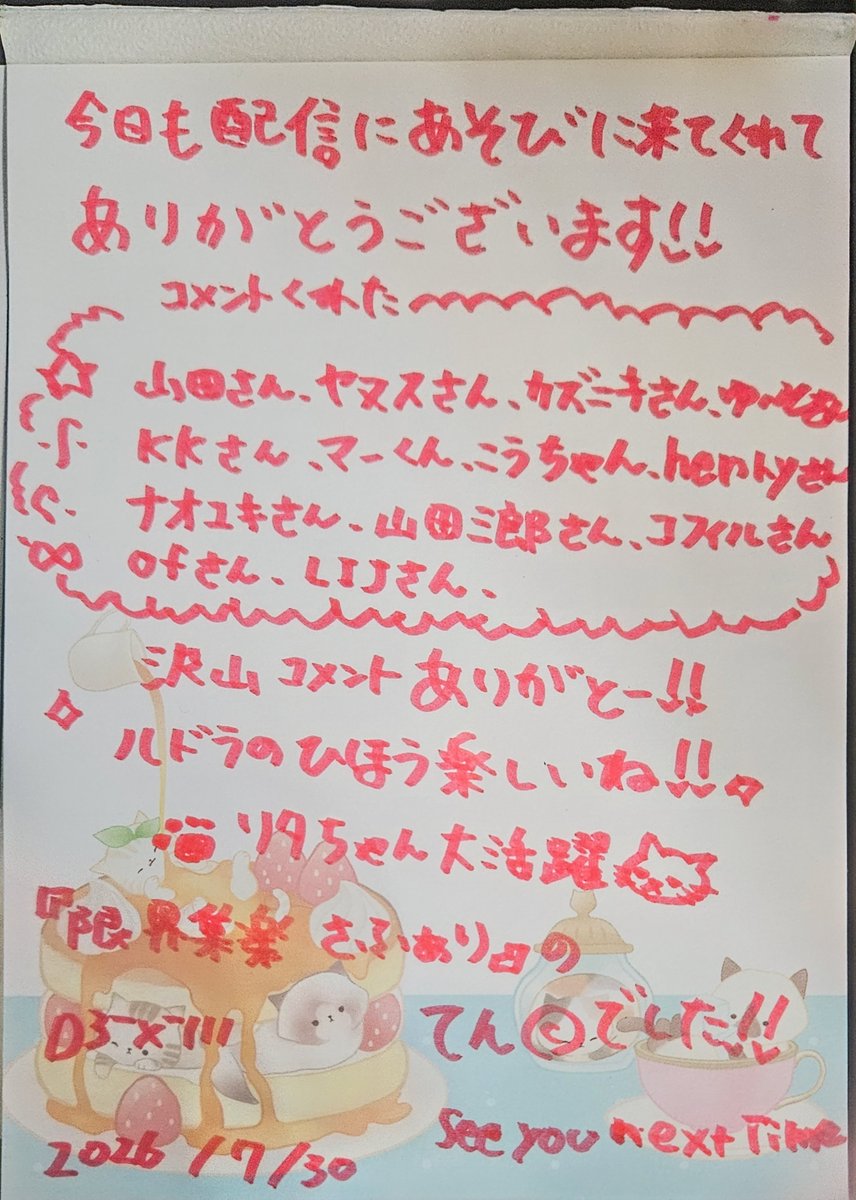 今日も配信にあそびに来てくれて
ありがとうございます!!
コメントくれた
山田さん、ヤヌスさん、カズニキさん、
KKさん、マーくん、こうちゃん、henryさん
ナオユキさん、山田三郎さん、コフィルさん
ofさん、LIJさん、
沢山コメントありがとー!!
ルドラのひほう楽しいね!!
リタちゃん大活躍
『限界 さふぁり』の
てん©でした!!
2026/7/30
See you next Time